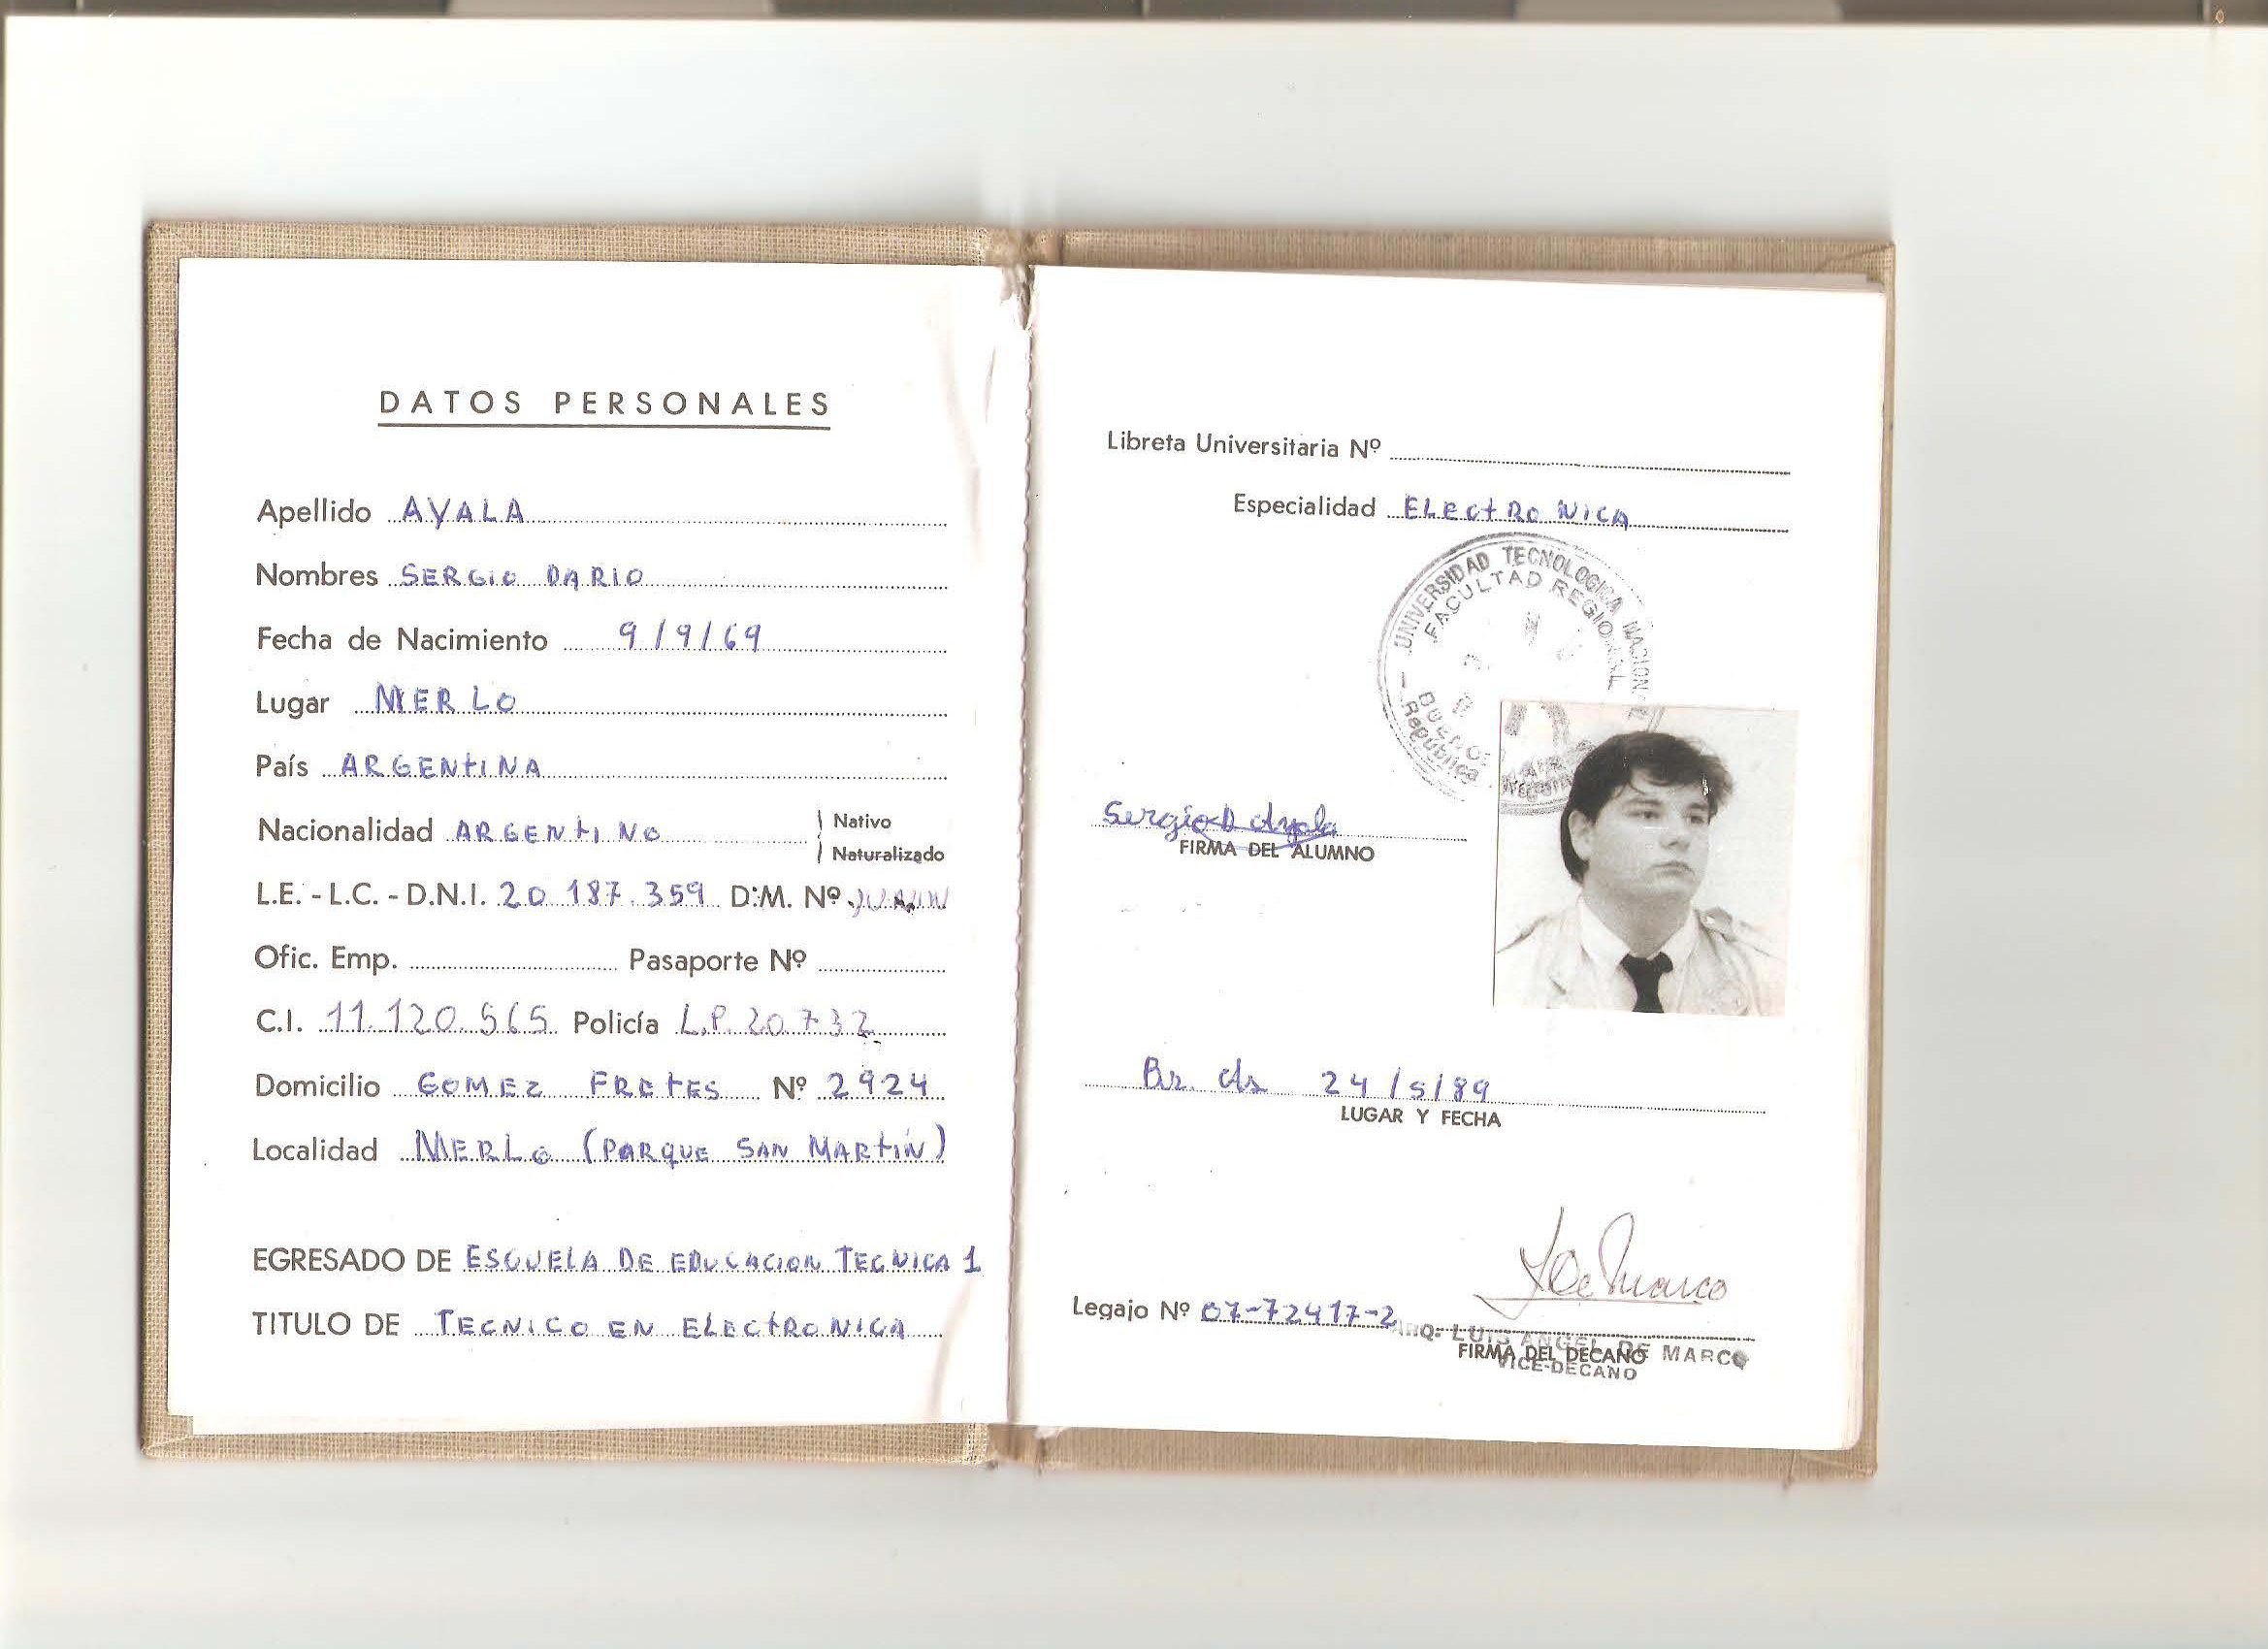 DATOS PERSONALES
Apellido AYALA
Nombres SERGIO DARIO
Fecha de Nacimiento 9/9/69
Lugar MERLO
País ARGENTINA
Nacionalidad ARGENTINO
Nativo
Naturalizado
L.E. - L.C. - D.N.I. 20 187.359 D.M. Nº
Ofic. Emp. Pasaporte Nº
C.I. 11.120.565 Policía L.P. 20.732
Domicilio GOMEZ FRETES Nº 2924
Localidad MERLO (PARQUE SAN MARTIN)
EGRESADO DE ESCUELA DE EDUCACION TECNICA 1
TITULO DE TECNICO EN ELECTRONICA
Libreta Universitaria Nº
Especialidad ELECTRONICA
UNIVERSIDAD TECNOLOGICA NACIONAL
FACULTAD REGIONAL
BUENOS
República
Sergio D Ayala
FIRMA DEL ALUMNO
24/5/89
LUGAR Y FECHA
De Marco
Legajo Nº 07-72417-2
ARQ: LUIS ANGEL DE MARCO
FIRMA DEL DECANO
VICE-DECANO